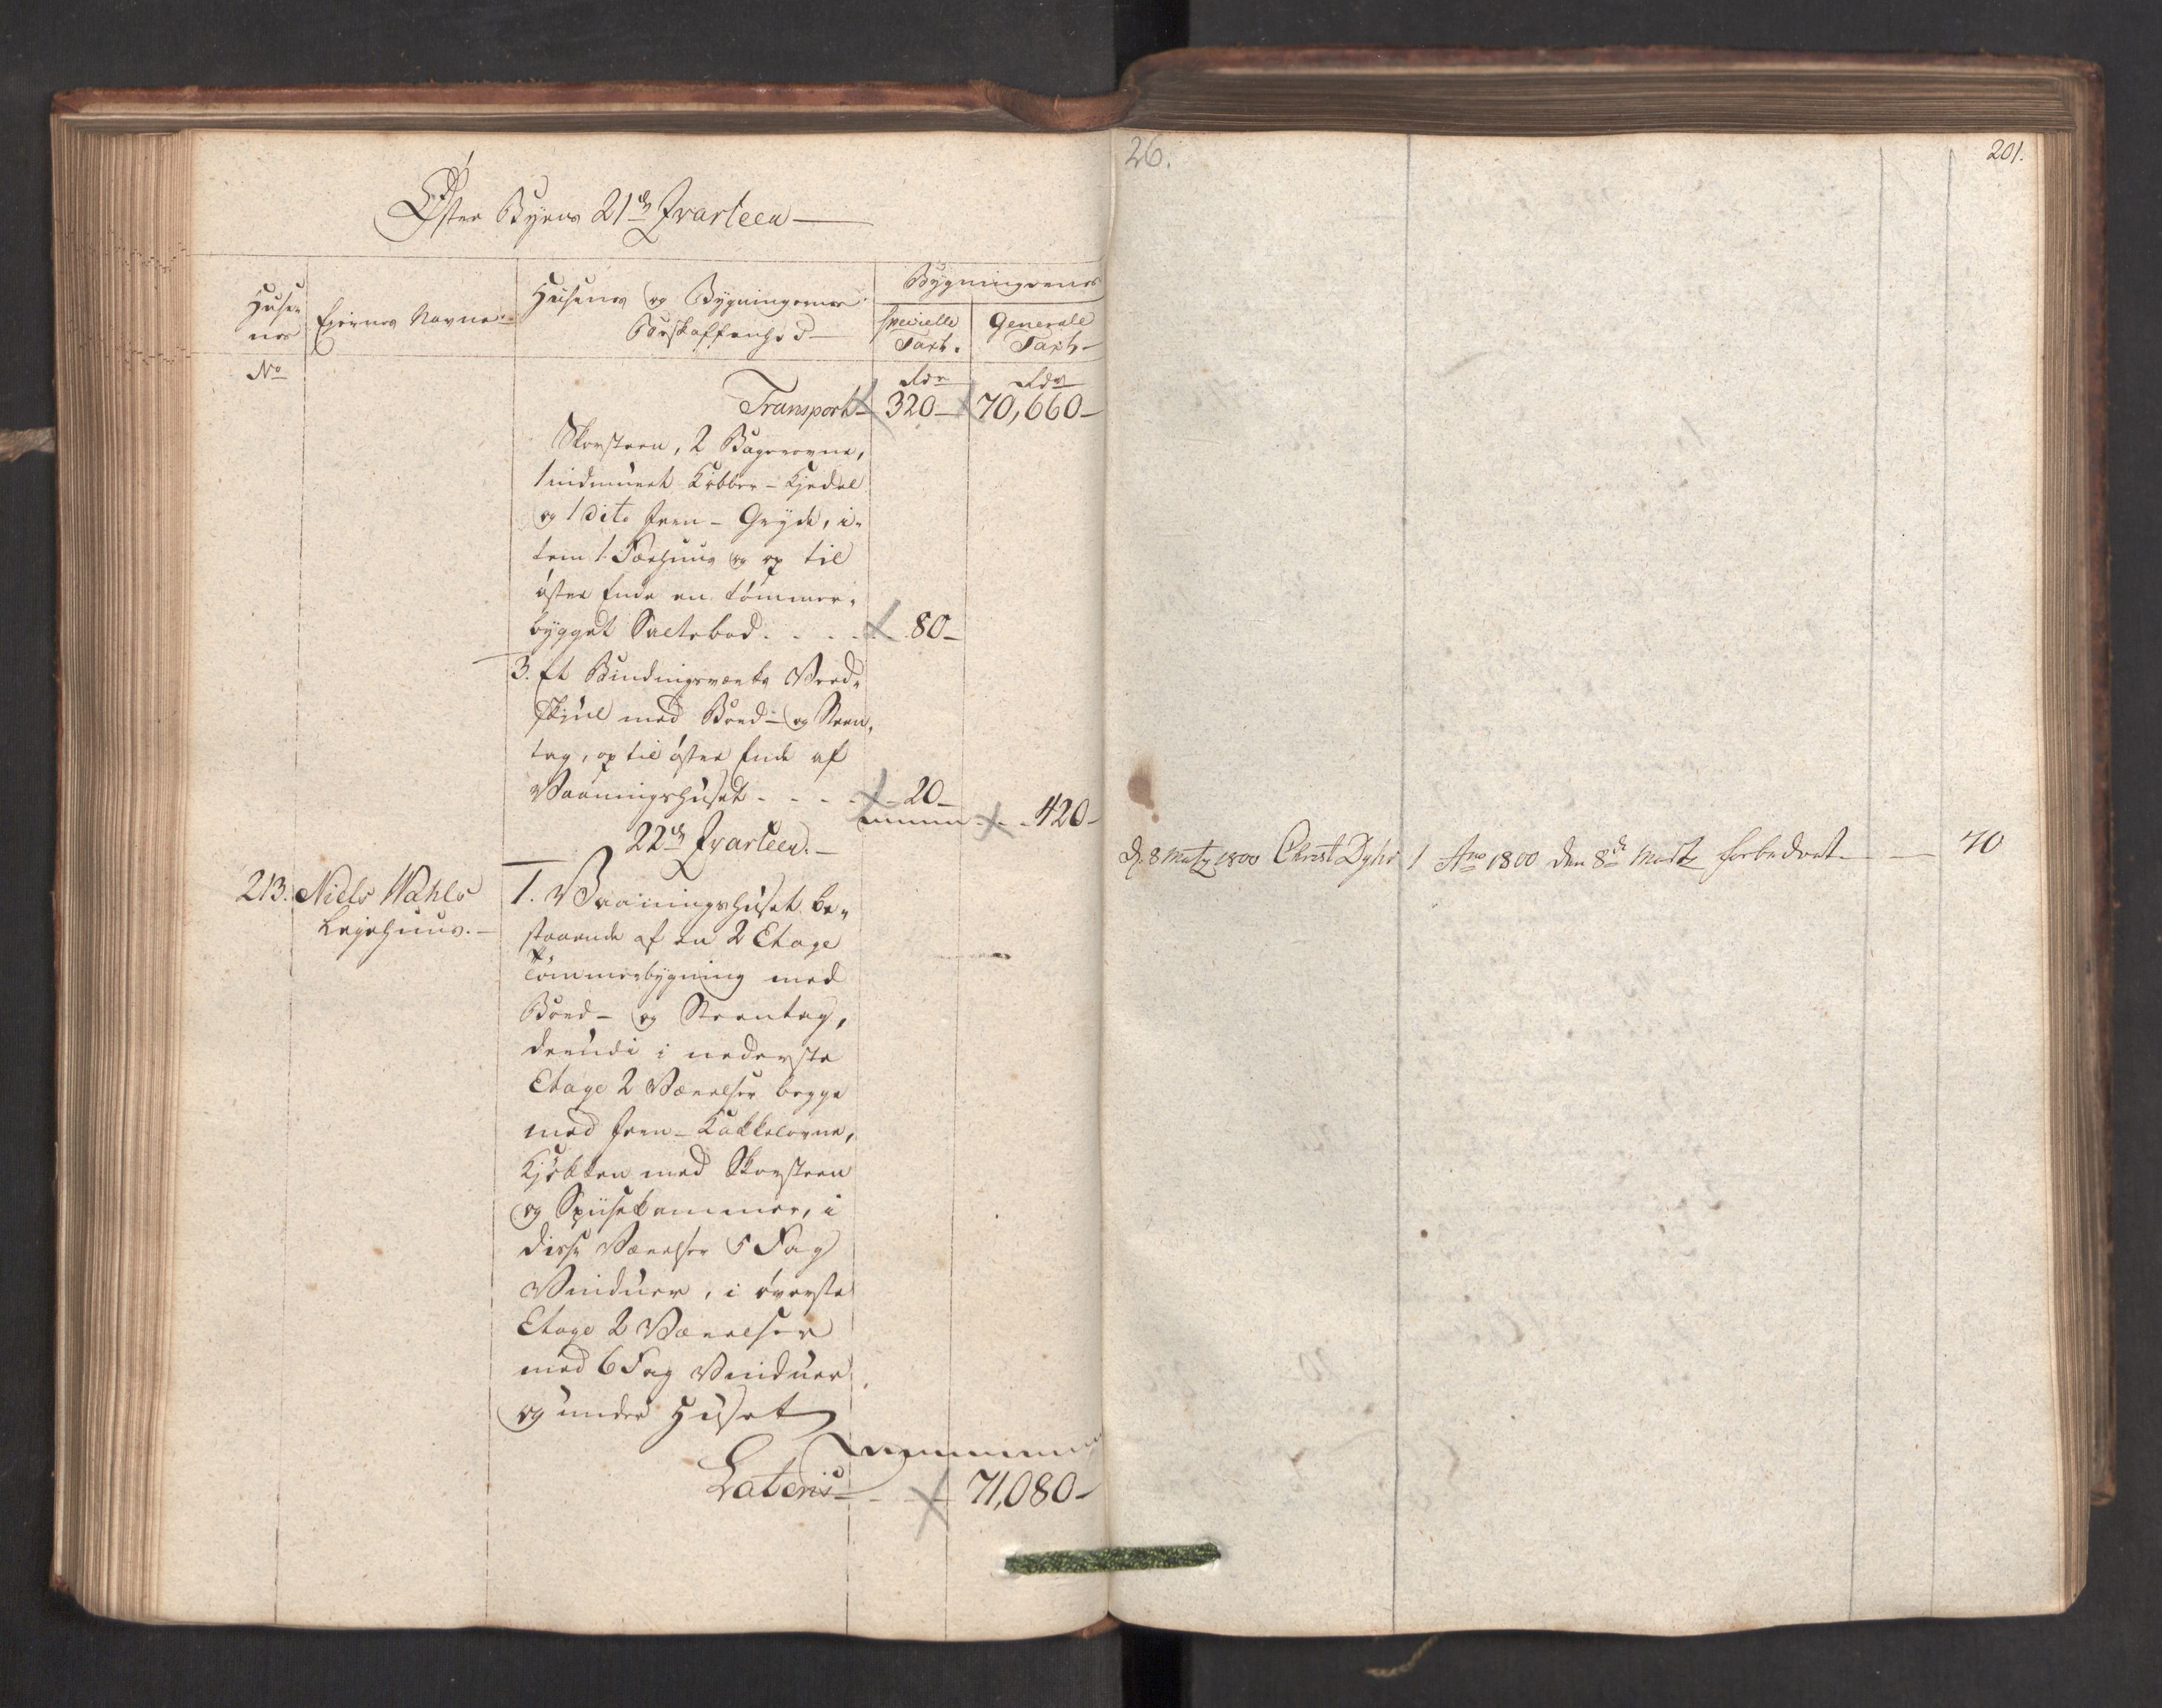 Østre Byens 21de Qvarteer
Huse-
nes
No
Eiernes Navne
Husenes og Bygningernes
Beskaffenhed
Bygningernes
specielle
Taxt.
Generale
Taxt
Rdr
Rdr
Transport 320 70,660
Skorsteen, 2 Bagerovne,
1 indmuret Kobber-Kjedel
og 1 dito Jern-Gryde, i-
tem 1 Fæehuus og op til
østre Ende en tømmer-
bygget Saltebod 80
3. Et Bindingsværks Veed-
Skjul med Bord- og Steen-
tag, op til østre Ende af
Vaaningshuset 20
420
22de Qvarteer.
213. Niels Wahls
Leyehuus.
1. Vaaningshuset be-
staaende af en 2 Etage
Tømmerbygning med
Bord- og Steentag,
derudi i nederste
Etage 2 Værelser begge
med Jern-Kakkelovne,
Kjøkken med Skorsteen
og Spiisekammer, i
disse Værelser 5 Fag
Vinduer, i øverste
Etage 2 Værelser
med 6 Fag Vinduer
og under Huset
Lateris 71,080
26.
201.
d. 8 Martz 1800 Christ Dyhr 1 Ano 1800 den 8de Martz forbedret 70